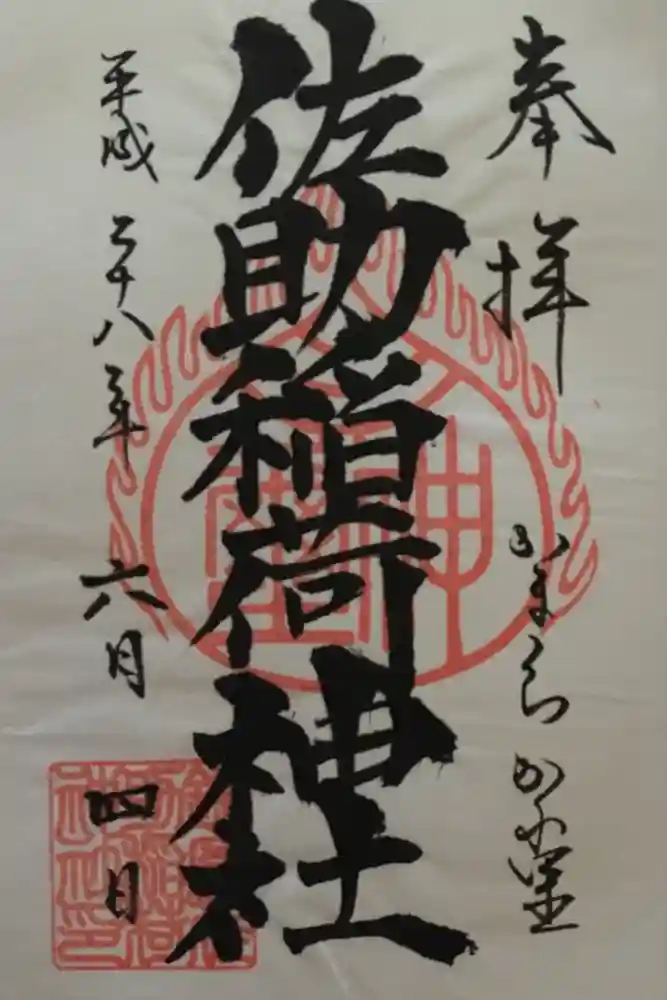 奉拝
かまくらかくれ里
佐助稲荷神社
平成二十八年
六月
四日